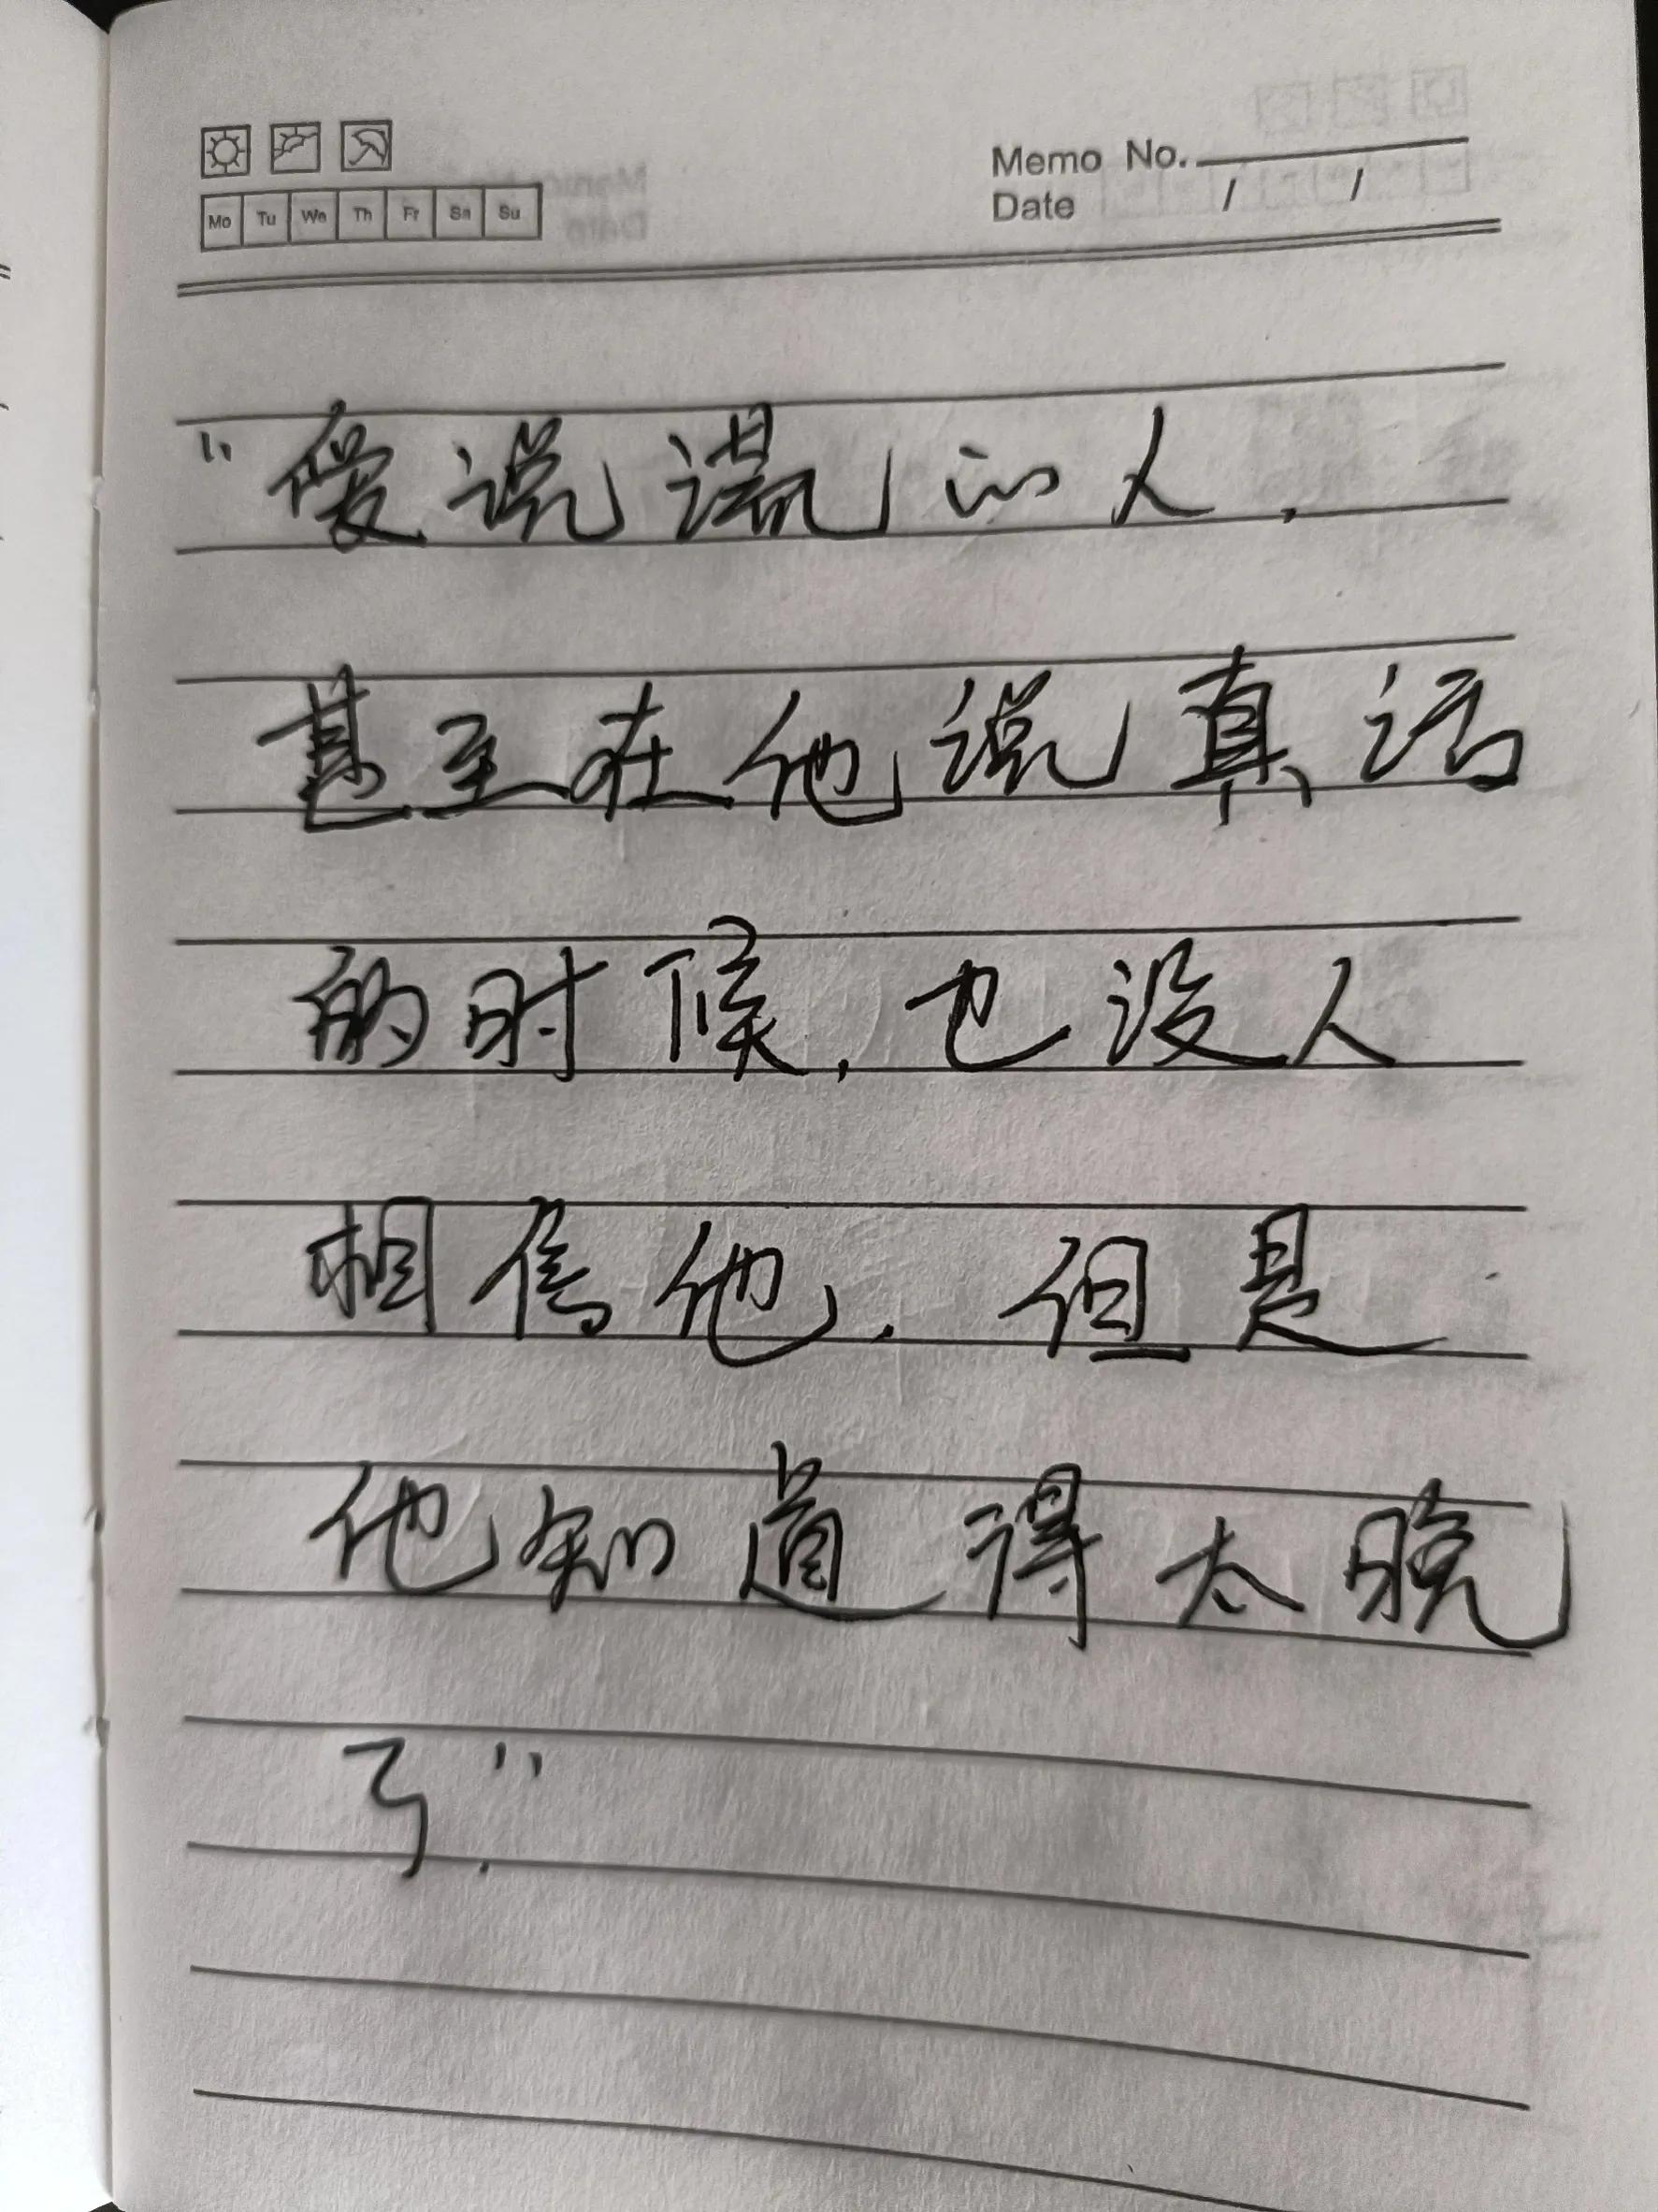 Memo No.
Date / /
Mo Tu We Th Fr Sa Su
“爱说谎的人，
甚至在他说真话
的时候，也没人
相信他，但是
他知道得太晚
了.”